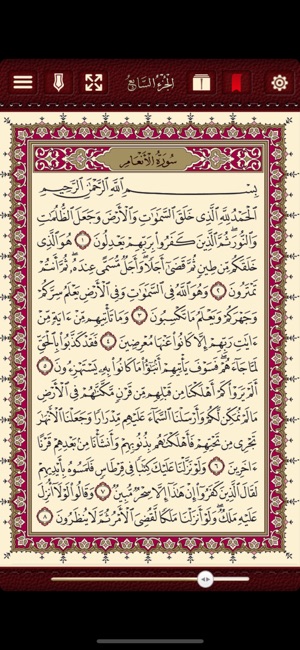 الجزء السابع
سورة الأنعام
بسم الله الرحمن الرحيم
الحمد لله الذي خلق السموات والأرض وجعل الظلمات
والنور ثم الذين كفروا بربهم يعدلون ١ هو الذي
خلقكم من طين ثم قضى أجلا وأجل مسمى عنده ثم أنتم
تمترون ٢ وهو الله في السموات وفي الأرض يعلم سركم
وجهركم ويعلم ما تكسبون ٣ وما تأتيهم من ءاية من
ءايت ربهم إلا كانوا عنها معرضين ٤ فقد كذبوا بالحق
لما جاءهم فسوف يأتيهم أنبؤا ما كانوا به يستهزءون ٥
ألم يروا كم أهلكنا من قبلهم من قرن مكنهم في الأرض
ما لم نمكن لكم وأرسلنا السماء عليهم مدرارا وجعلنا الأنهر
تجري من تحتهم فأهلكنهم بذنوبهم وأنشأنا من بعدهم قرنا
ءاخرين ٦ ولو نزلنا عليك كتبا في قرطاس فلمسوه بأيديهم
لقال الذين كفروا إن هذا إلا سحر مبين ٧ وقالوا لولا أنزل
عليه ملك ولو أنزلنا ملكا لقضي الأمر ثم لا ينظرون ٨